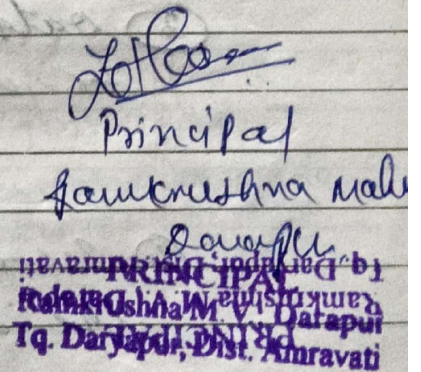 Principal
Ramkrushna Maha
Darapur
PRINCIPAL
Ramkrushna M. V. Darapur
Tq. Daryapur, Dist. Amravati